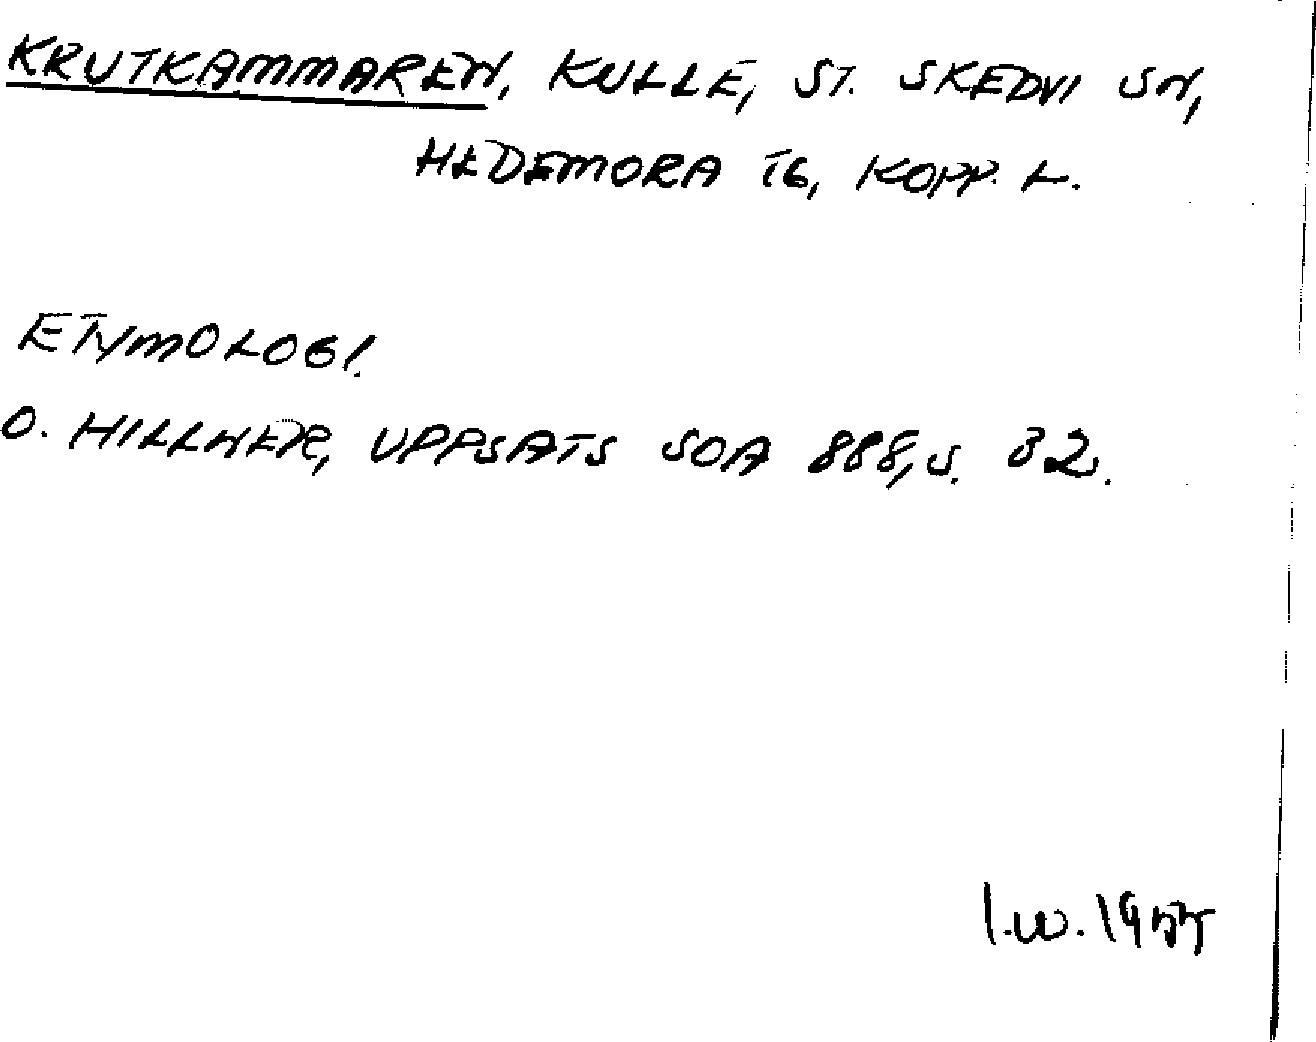 KRUTKAMMAREN, KULLE, ST. SKEDVI SN,
HEDEMORA TG, KOPP. L.
ETYMOLOGI.
O. HILLNER, UPPSATS SOA 888, S. 32.
I.W. 1977